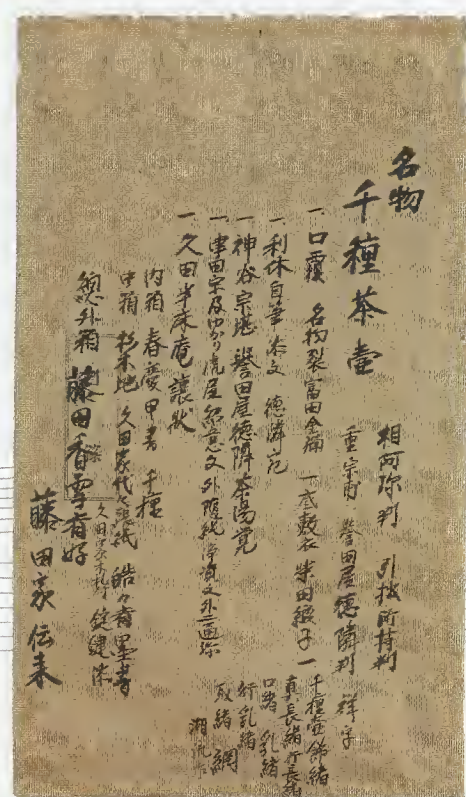 名物
千種茶壷
相阿弥判 引拙所持判
重宗甫 誉田屋徳隣判 祥字
一 口覆 名物裂富田金襴 一 底敷衣 柴田緞子 一 千種壷飾緒
真長緒 行長緒
口緒 乳緒
行乳緒
取緒 網
湘流作
一 利休自筆 本文 徳隣宛
一 神谷宗湛 誉田屋徳隣茶湯覚
一 津田宗及ゆかり虎屋紹意文外 文外二通添
一 久田半床庵譲状
内箱 春慶甲書 千種
中箱 杉木地 久田家代々張紙 皓々斎墨書
久田宗木 錠鍵添
総外箱 藤田香雪斎好
藤田家伝来